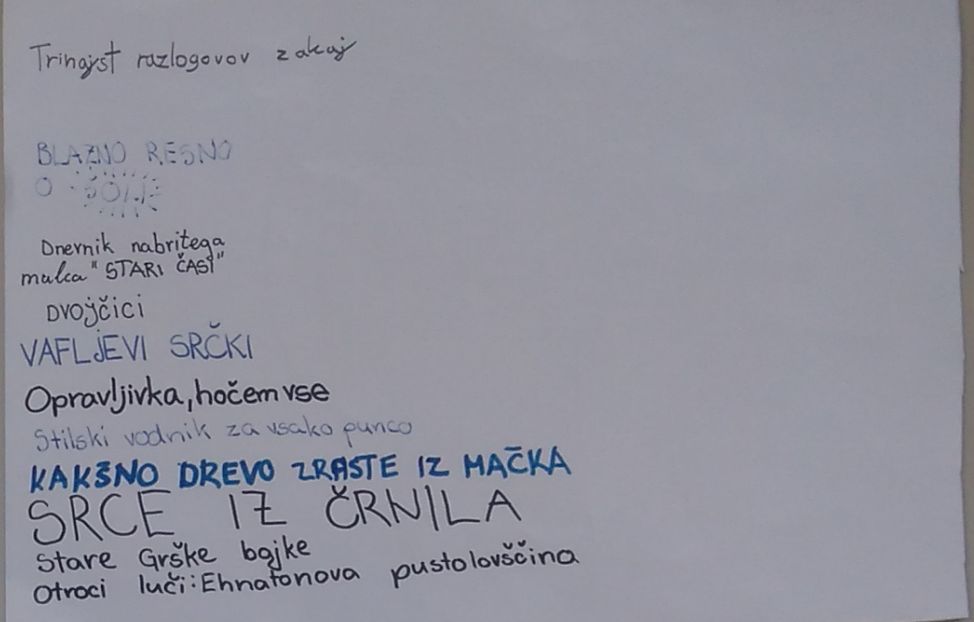 Trinajst razlogovov zakaj
BLAZNO RESNO
O ŠOLI
Dnevnik nabritega
mulca "STARI ČASI"
Dvojčici
VAFLJEVI SRČKI
Opravljivka, hočem vse
Stilski vodnik za vsako punco
KAKŠNO DREVO ZRASTE IZ MAČKA
SRCE IZ ČRNILA
Stare Grške bajke
Otroci luči: Ehnatonova pustolovščina